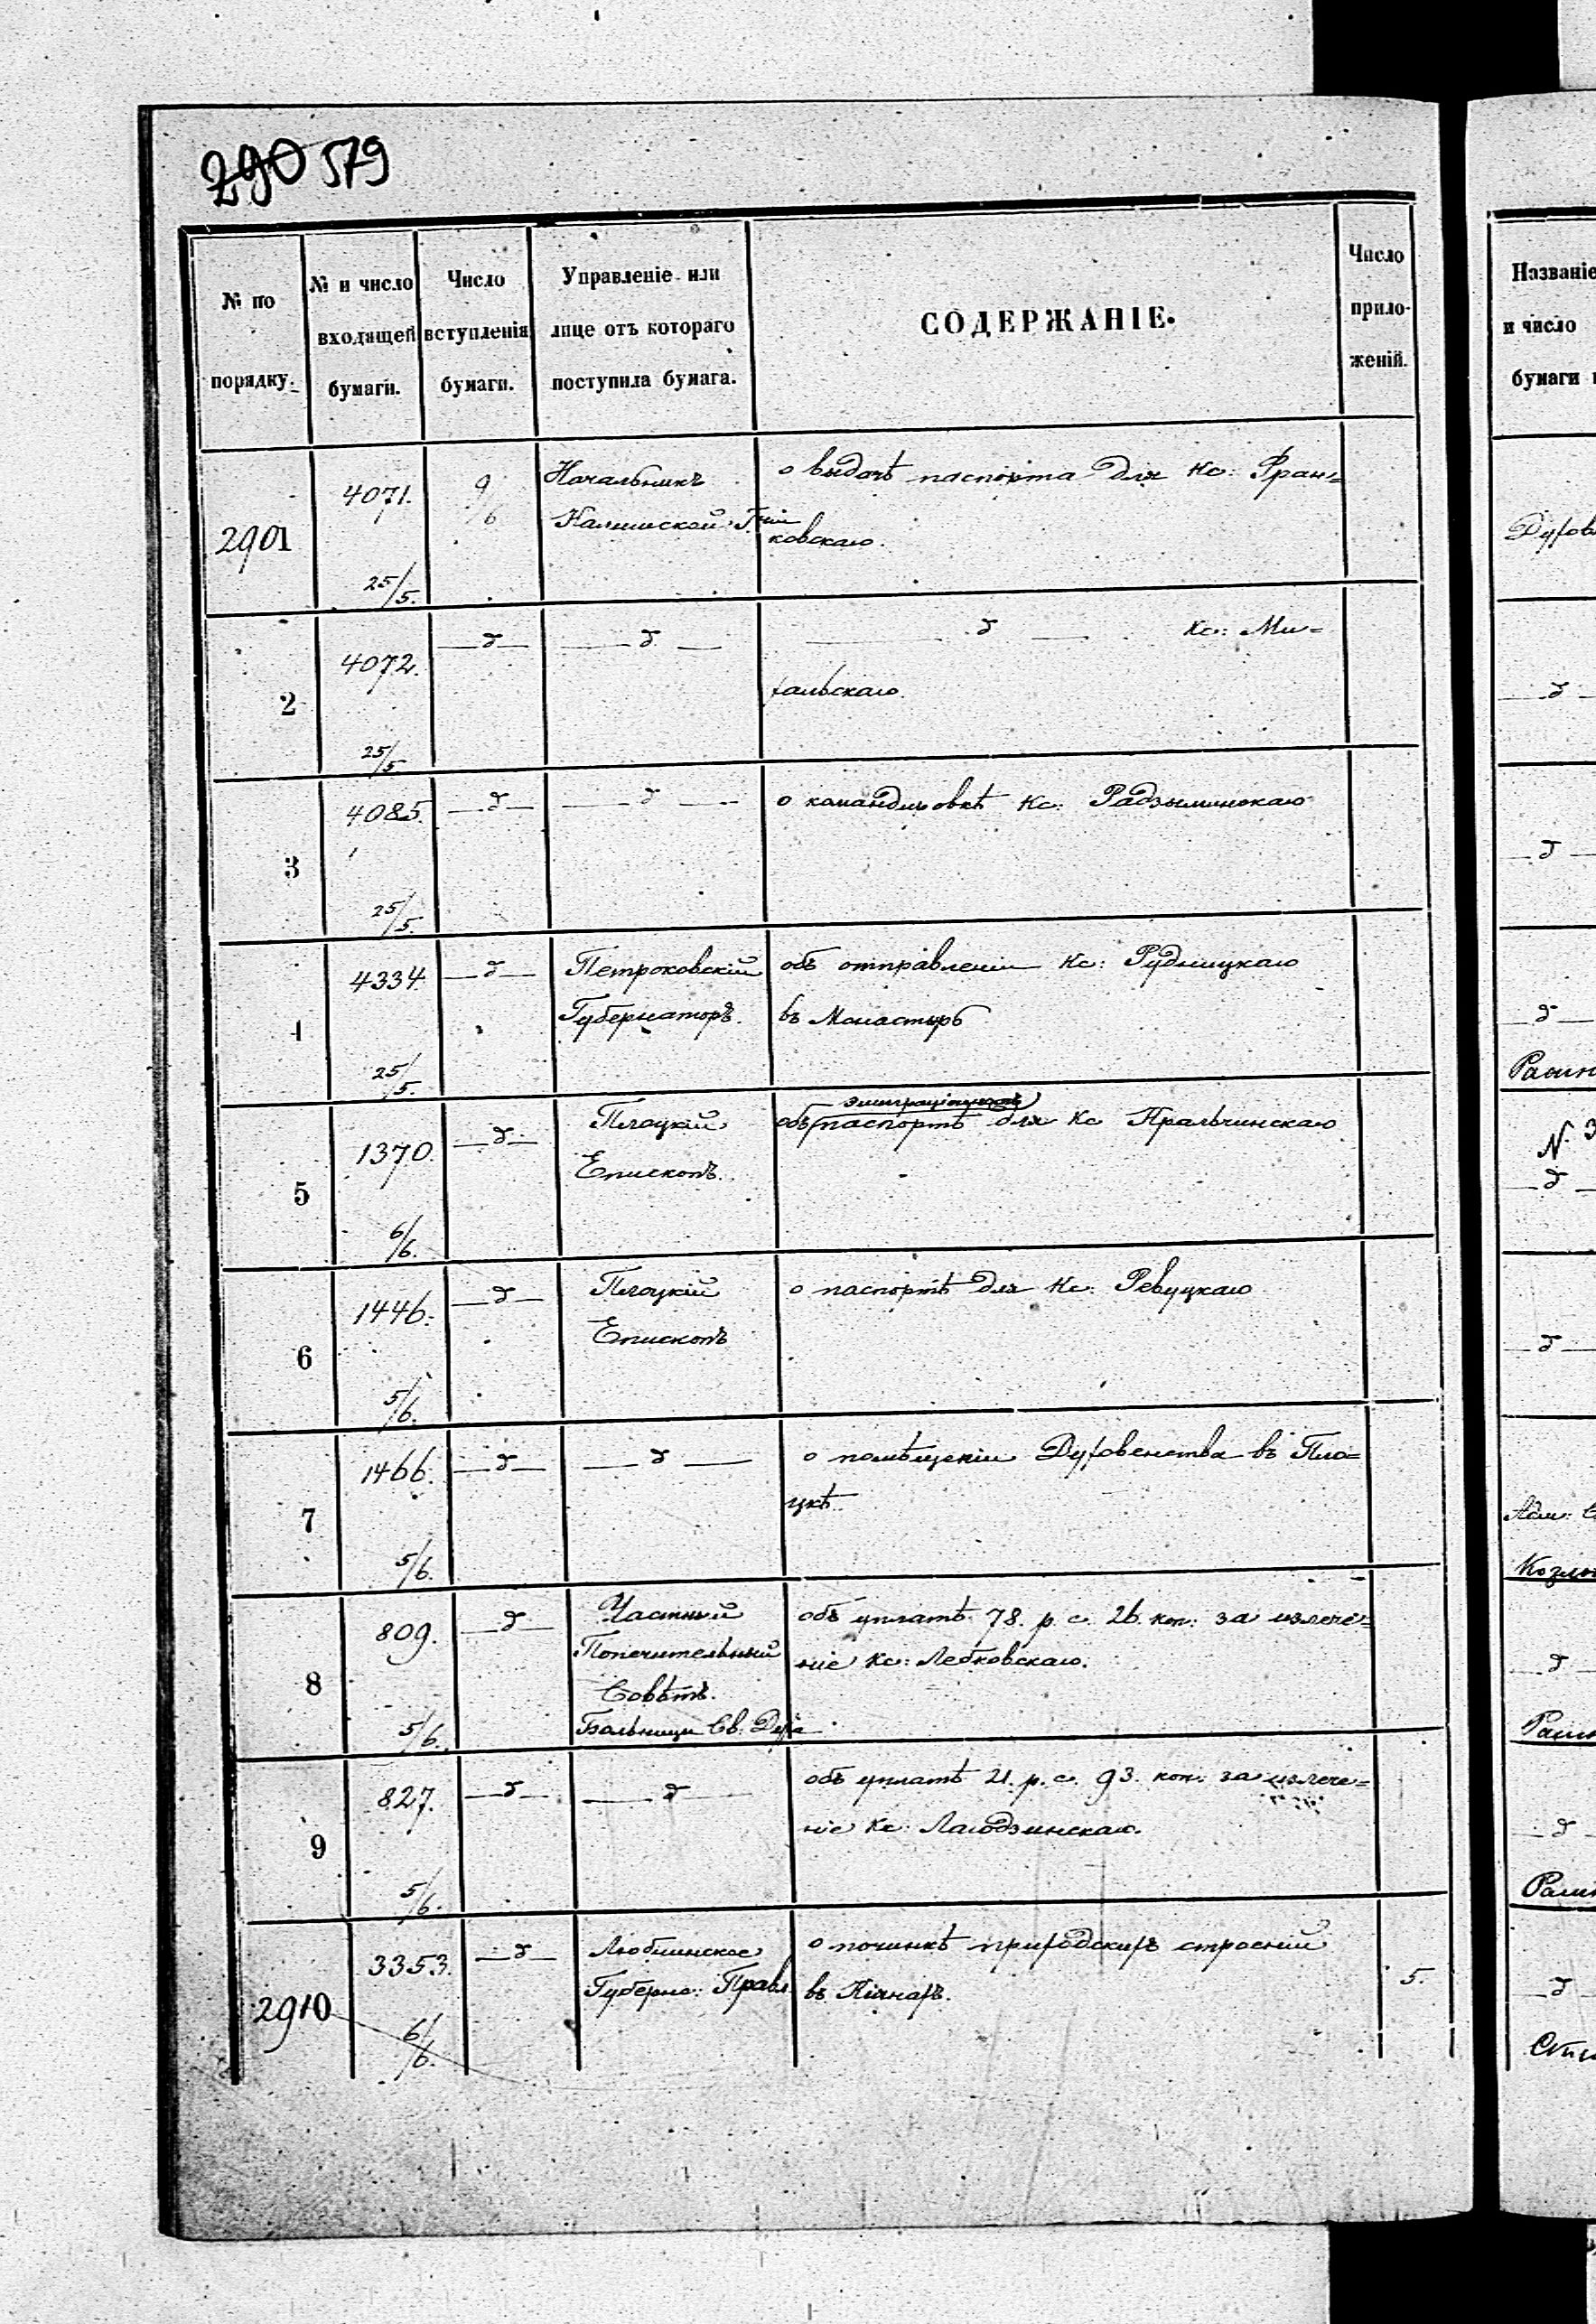 290 579
№ по порядку.
№ и число входящей бумаги.
Число вступленія бумаги.
Управленіе или лице отъ котораго поступила бумага.
СОДЕРЖАНІЕ.
Число приложеній.
2901
4071.
25/5.
9/6
Начальникъ
Калишской Гніи
о выдачѣ паспорта для Кс: Фран=
ковскаго.
2
4072.
25/5
—δ—
—δ—
—δ— Кс: Ми=
хальскаго.
3
4085.
25/5.
—δ—
—δ—
о командировкѣ Кс: Радзыминскаго
4
4334
25/5.
—δ—
Петроковскій
Губернаторъ.
объ отправленіи Кс: Рудницкаго
въ Монастырь
5
1370.
6/6.
—δ—
Плоцкій
Епископъ.
эмиграціонномъ
объ паспортѣ для Кс Кральчинскаго
6
1446.
5/6.
—δ—
Плоцкій
Епископъ
о паспортѣ для Кс: Ревуцкаго
7
1466.
5/6.
—δ—
—δ—
о помѣщеніи Духовенства въ Пло=
цкѣ.
8
809.
5/6.
—δ—
Частный
Попечительный
Совѣтъ.
Больницы Св. Духа
объ уплатѣ 78. р. с. 26. коп: за излече=
ніе Кс: Лебковскаго.
9
827.
5/6.
—δ—
—δ—
объ уплатѣ 21. р. с. 93. коп: за излече=
ніе Кс: Лагодзинскаго.
2910
3353.
6/6.
—δ—
Люблинское
Губерно: Правл.
о починкѣ приходскихъ строеній
въ
5.
Названіе
и число
бумаги
—δ—
—δ—
—δ—
N. 3
—δ—
—δ—
—δ—
—δ—
—δ—